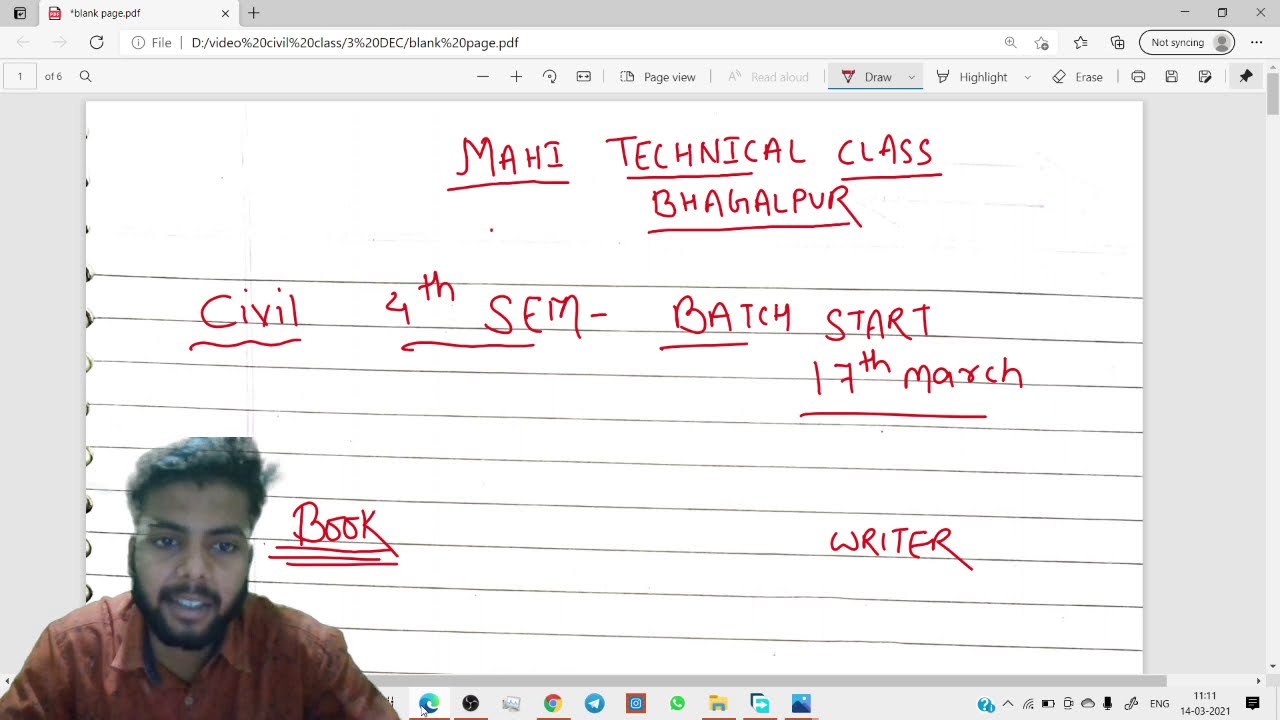 *blank page.pdf
File | D:/video%20civil%20class/3%20DEC/blank%20page.pdf
Not syncing
1 of 6
Page view
Read aloud
Draw
Highlight
Erase
MAHI TECHNICAL CLASS
BHAGALPUR
Civil 4th SEM- BATCH START
17th march
BOOK
WRITER
ENG
11:11
14-03-2021